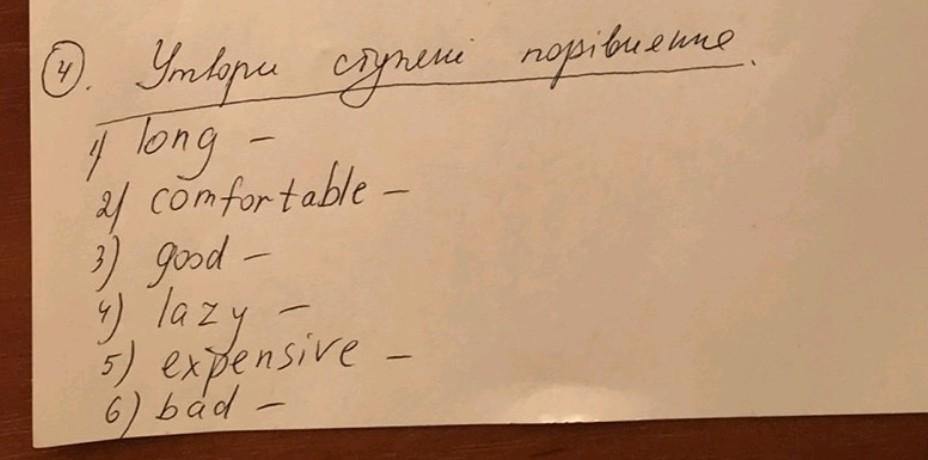 4. Утвори ступені порівнення.
1) long -
2) comfortable -
3) good -
4) lazy -
5) expensive -
6) bad -